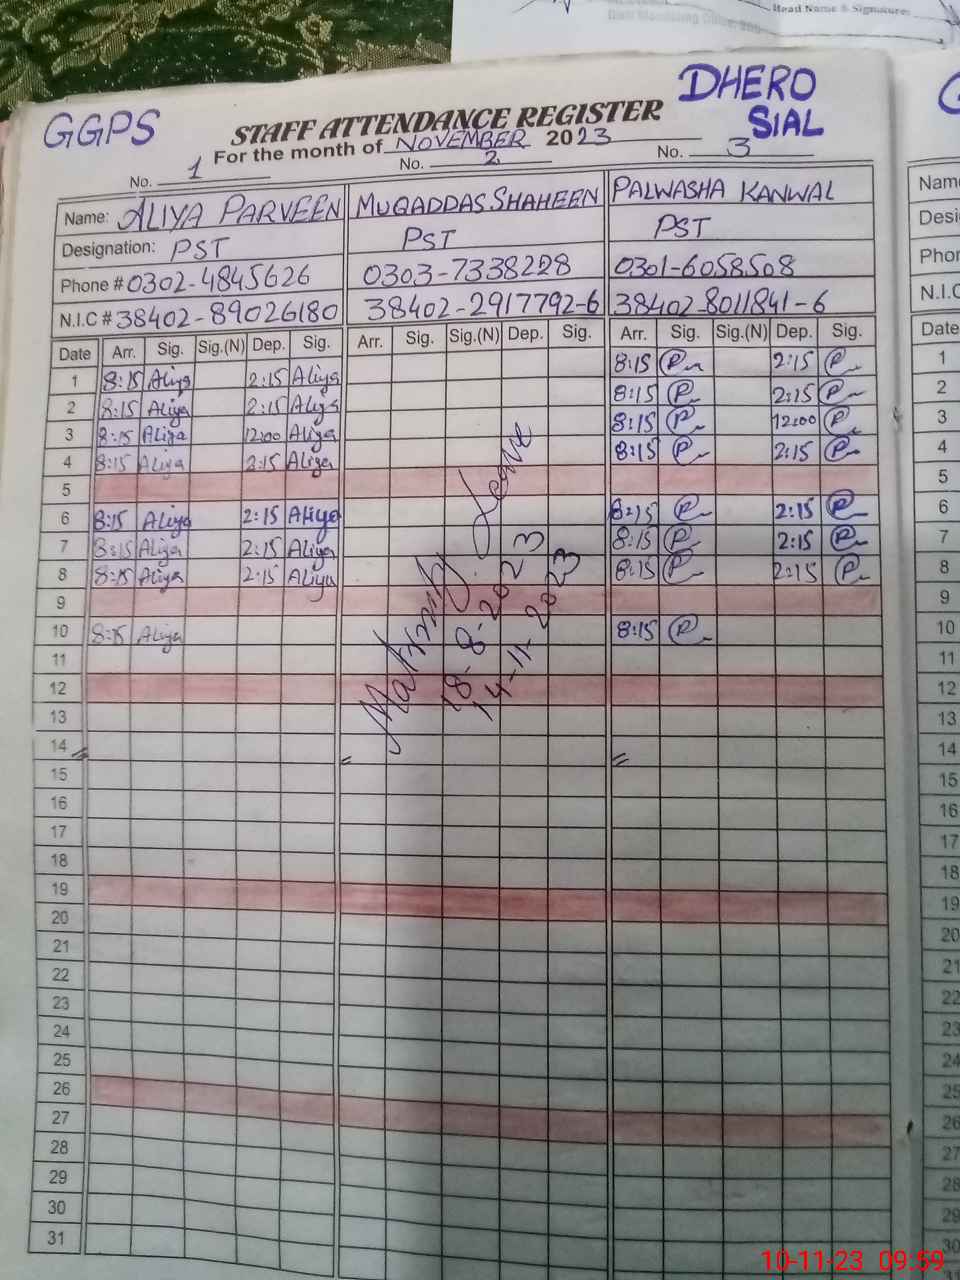 Head Name & Signature:
GGPS
STAFF ATTENDANCE REGISTER
DHERO
SIAL
For the month of NOVEMBER 2023
No. 1 No. 2 No. 3
Name: ALIYA PARVEEN MUQADDAS SHAHEEN PALWASHA KANWAL Name
Designation: PST PST PST
Phone # 0302-4845626 0303-7338228 0301-6058508
N.I.C # 38402-89026180 38402-2917792-6 38402-8011841-6 N.I.C
Date Arr. Sig. Sig.(N) Dep. Sig. Arr. Sig. Sig.(N) Dep. Sig. Arr. Sig. Sig.(N) Dep. Sig. Date
1 8:15 Aliya 2:15 Aliya 8:15 2:15 1
2 8:15 Aliya 2:15 Aliya 8:15 2:15 2
3 8:15 Aliya 12:00 Aliya 8:15 12:00 3
4 8:15 Aliya 2:15 Aliya 8:15 2:15 4
5 5
6 8:15 Aliya 2:15 Aliya 8:15 2:15 6
7 8:15 Aliya 2:15 Aliya 8:15 2:15 7
8 8:15 Aliya 2:15 Aliya 8:15 2:15 8
9 9
10 8:15 Aliya 8:15 10
Leave
18-8-2023
14-11-2023
11 11
12 12
13 13
14 14
15 15
16 16
17 17
18 18
19 19
20 20
21 21
22 22
23 23
24 24
25 25
26 26
27 27
28 28
29 29
30 30
31
10-11-23 09:59